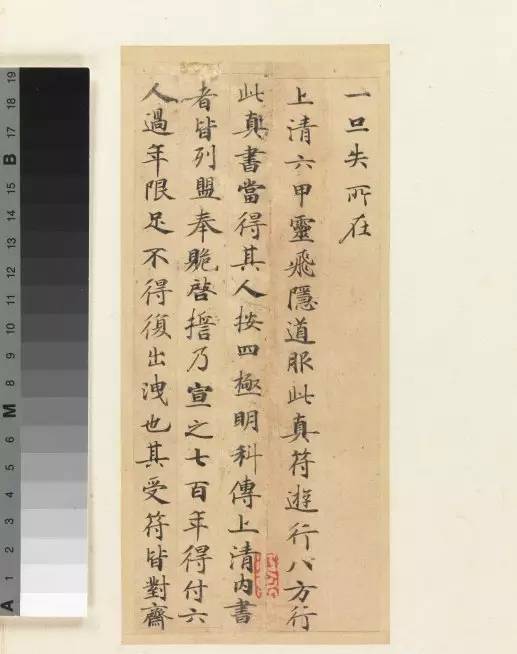 一旦失所在
上清六甲靈飛隱道服此真符遊行八方行
此真書當得其人按四極明科傳上清內書
者皆列盟奉䞈啓誓乃宣之七百年得付六
人過年限足不得復出洩也其受符皆對齋
A 1 2 3 4 5 6 M 8 9 10 11 12 13 14 15 B 17 18 19